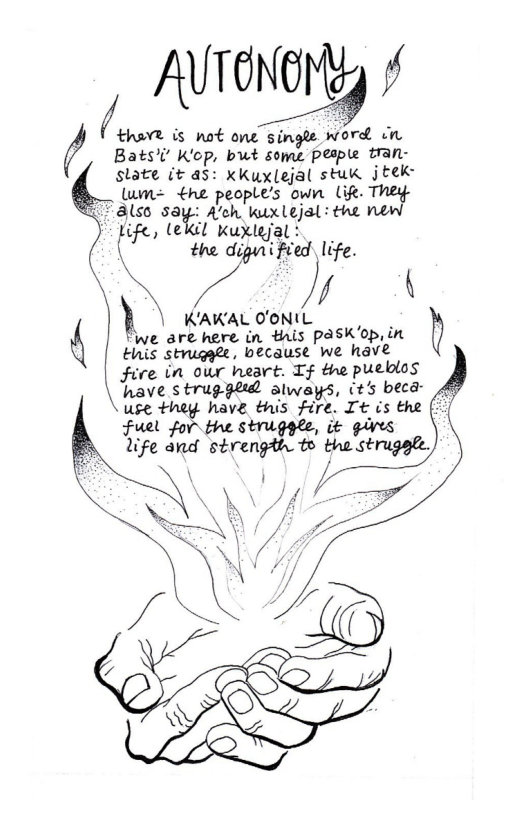 AUTONOMY
there is not one single word in
Bats'i' K'op, but some people tran-
slate it as: xkuxlejal stuk jtek-
lum- the people's own life. They
also say: A'ch kuxlejal: the new
life, lekil kuxlejal:
the dignified life.
K'AK'AL O'ONIL
we are here in this pask'op, in
this struggle, because we have
fire in our heart. If the pueblos
have struggled always, it's beca-
use they have this fire. It is the
fuel for the struggle, it gives
life and strength to the struggle.